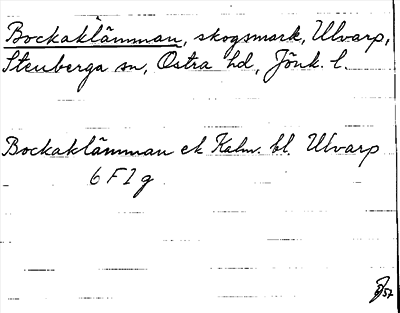 Bockaklämman, skogsmark, Ulvarp,
Stenberga sn, Östra hd, Jönk. l.
Bockaklämman ek Kalm. bl. Ulvarp
6 F 2 g
57